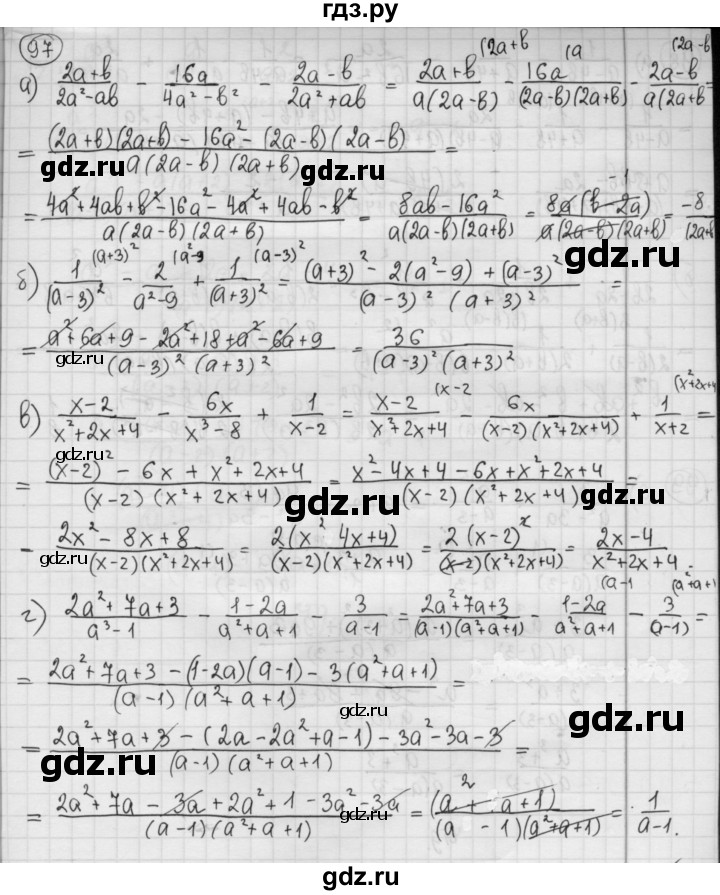 гдз.ру
97
(2a+b (a (2a-b
а) \frac{2a+b}{2a²-ab} - \frac{16a}{4a²-b²} - \frac{2a-b}{2a²+ab} = \frac{2a+b}{a(2a-b)} - \frac{16a}{(2a-b)(2a+b)} - \frac{2a-b}{a(2a+b} =
= \frac{(2a+b)(2a+b) - 16a² - (2a-b)(2a-b)}{a(2a-b)(2a+b)} =
gdz.ru gdz.ru
= \frac{4a²+4ab+b²-16a²-4a²+4ab-b²}{a(2a-b)(2a+b)} = \frac{8ab-16a²}{a(2a-b)(2a+b)} = \frac{8a(b-2a)}{a(2a-b)(2a+b)} = \frac{-8}{(2a+b}
-1
(a+3)² (a²-9 (a-3)²
б) \frac{1}{(a-3)²} - \frac{2}{a²-9} + \frac{1}{(a+3)²} = \frac{(a+3)² - 2(a²-9) + (a-3)²}{(a-3)² (a+3)²} =
gdz.ru
= \frac{a²+6a+9-2a²+18+a²-6a+9}{(a-3)² (a+3)²} = \frac{36}{(a-3)²(a+3)²}
gdz.ru gdz.ru
(x-2 (x²+2x+4
в) \frac{x-2}{x²+2x+4} - \frac{6x}{x³-8} + \frac{1}{x-2} = \frac{x-2}{x²+2x+4} - \frac{6x}{(x-2)(x²+2x+4)} + \frac{1}{x+2} =
gdz.ru
= \frac{(x-2)² - 6x + x²+2x+4}{(x-2)(x²+2x+4)} = \frac{x²-4x+4-6x+x²+2x+4}{(x-2)(x²+2x+4)} =
gdz.ru
- \frac{2x²-8x+8}{(x-2)(x²+2x+4)} = \frac{2(x² 4x+4)}{(x-2)(x²+2x+4)} = \frac{2(x-2)²}{(x-2)(x²+2x+4)} = \frac{2x-4}{x²+2x+4}.
gdz.ru gdz.ru
(a-1 (a²+a+1)
г) \frac{2a²+7a+3}{a³-1} - \frac{1-2a}{a²+a+1} - \frac{3}{a-1} = \frac{2a²+7a+3}{(a-1)(a²+a+1)} - \frac{1-2a}{a²+a+1} - \frac{3}{a-1)} =
gdz.ru
= \frac{2a²+7a+3-(1-2a)(a-1)-3(a²+a+1)}{(a-1)(a²+a+1)} =
gdz.ru gdz.ru
= \frac{2a²+7a+3-(2a-2a²+a-1)-3a²-3a-3}{(a-1)(a²+a+1)} =
gdz.ru gdz.ru
= \frac{2a²+7a-3a+2a²+1-3a²-3a}{(a-1)(a²+a+1)} = \frac{(a²+a+1)}{(a-1)(a²+a+1)} = \frac{1}{a-1}.
gdz.ru gdz.ru